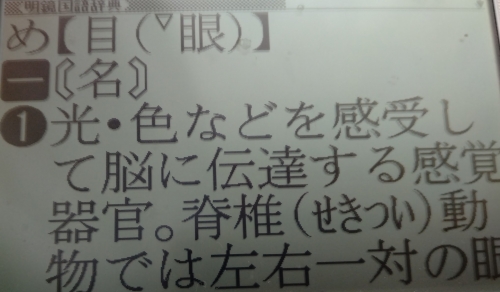 明鏡国語辞典
め【目(▽眼)】
一〘名〙
❶光・色などを感受し
て脳に伝達する感覚
器官。脊椎(せきつい)動
物では左右一対の眼